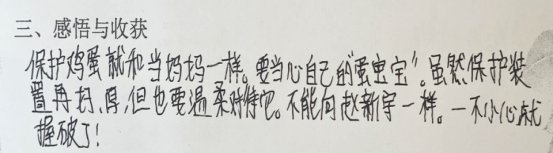 三、感悟与收获
保护鸡蛋就和当妈妈一样。要当心自己的“蛋宝宝”。虽然保护装
置再好,厚,但也要温柔对待它。不能向赵新宇一样。一不小心就
握破了!